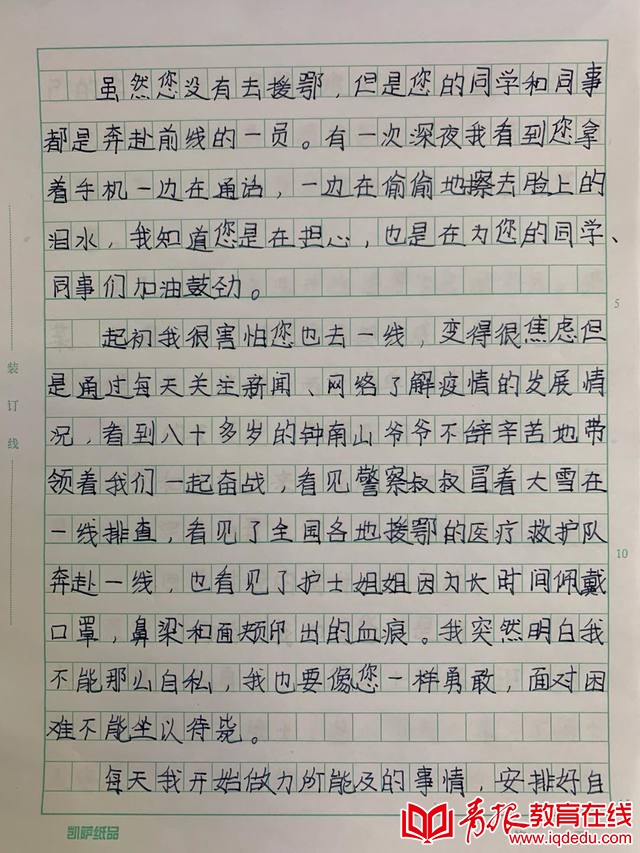 虽然您没有去援鄂，但是您的同学和同事
都是奔赴前线的一员。有一次深夜我看到您拿
着手机一边在通话，一边在偷偷地擦去脸上的
泪水，我知道您是在担心，也是在为您的同学、
同事们加油鼓劲。
5
起初我很害怕您也去一线，变得很焦虑但
是通过每天关注新闻、网络了解疫情的发展情
况，看到八十多岁的钟南山爷爷不辞辛苦地带
领着我们一起奋战，看见警察叔叔冒着大雪在
一线排查，看见了全国各地援鄂的医疗救护队
10
奔赴一线，也看见了护士姐姐因为长时间佩戴
口罩，鼻梁和面颊印出的血痕。我突然明白我
不能那么自私，我也要像您一样勇敢，面对困
难不能坐以待毙。
每天我开始做力所能及的事情，安排好自
装订线
凯萨纸品
青报教育在线
www.iqdedu.com